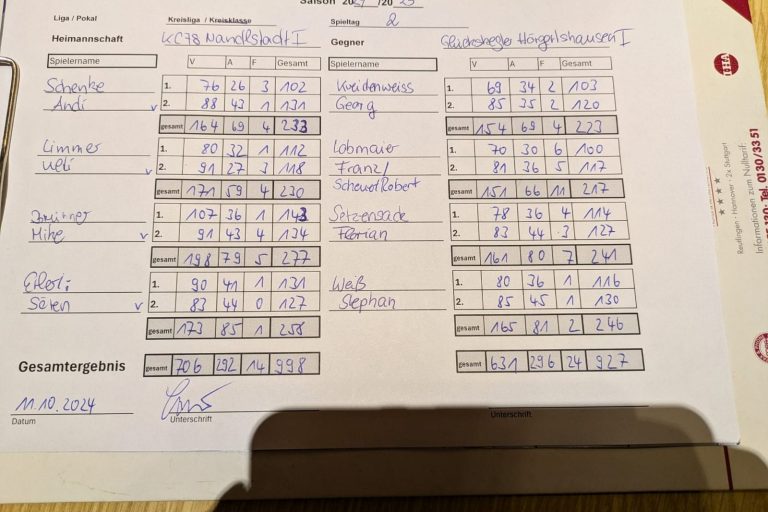 Saison 2024/2025
Liga / Pokal Kreisliga / Kreisklasse Spieltag 2
Heimannschaft KC78 Nandlstadt I Gegner Glückskegler Hörgertshausen I
Spielername V A F Gesamt Spielername V A F Gesamt
Schenke 1. 76 26 3 102 Kreidenweiss 1. 69 34 2 103
Andi v 2. 88 43 1 131 Georg 2. 85 35 2 120
gesamt 164 69 4 233 gesamt 154 69 4 223
Limmer 1. 80 32 1 112 Lobmaier 1. 70 30 6 100
Ueli v 2. 91 27 3 118 Franz/ 2. 81 36 5 117
gesamt 171 59 4 230 Scheuerl Robert gesamt 151 66 11 217
1. 107 36 1 143 Setzensack 1. 78 36 4 114
Mike v 2. 91 43 4 134 Florian 2. 83 44 3 127
gesamt 198 79 5 277 gesamt 161 80 7 241
1. 90 41 1 131 Weiß 1. 80 36 1 116
Sören v 2. 83 44 0 127 Stephan 2. 85 45 1 130
gesamt 173 85 1 258 gesamt 165 81 2 246
Gesamtergebnis gesamt 706 292 14 998 gesamt 631 296 24 927
11.10.2024
Datum Unterschrift Unterschrift
Reutlingen · Hannover · 2x Stuttgart
Informationen zum Nulltarif:
Tel. 0130/33 51